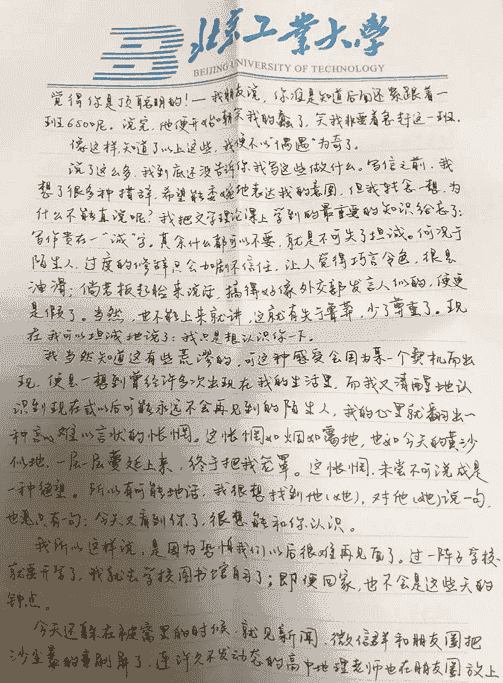 北京工業大学
BEIJING UNIVERSITY OF TECHNOLOGY
觉得你是顶聪明的！——我朋友说，你准是知道后面还紧跟着一
班680呢。说完，他便开始朝笑我的蠢了，笑我非要着急赶这一班。
像这样，知道了以上这些，我便不以“偶遇”为奇了。
说了这么多，我到底还没告诉你我写这些做什么。写信之前，我
想了很多种措辞，希望能委婉地表达我的意图，但我转念一想，为
什么不能直说呢？我把文学理论课上学到的最重要的知识给忘了：
写作贵在一“诚”字。其余什么都可以不要，就是不可失了坦诚。何况于
陌生人，过度的修辞只会加剧不信任，让人觉得巧言令色，很是
油滑；倘老板起脸来说话，搞得好像外交部发言人似的，便更
是假了。当然，也不能上来就讲，这就有失于鲁莽，少了尊重了。现
在我可以坦诚地说了：我只是想认识你一下。
我当然知道这有些荒谬的，可这种感受会因为某一个契机而出
现，便是一想到曾经许多次出现在我的生活里，而我又清醒地认
识到现在或以后可能永远不会再见到的陌生人，我的心里就翻出一
种言难以言状的怅惘。这怅惘如烟如雾地，也如今天的黄沙
似地，一层层蔓延上来，终于把我笼罩。这怅惘，未尝不可说成是
一种绝望。所以有可能地话，我很想找到他（她），对他（她）说一句，
也是只有一句：今天又看到你了，很想能和你认识。
我所以这样说，是因为恐怕我们以后很难再见面了。过一阵子学校
就要开学了，我就去学校图书馆自习了；即便回家，也不会是这些天的
钟点。
今天还躺在被窝里的时候，就见新闻、微信群和朋友圈把
沙尘暴的事刷屏了，连许久不发动态的高中地理老师也在朋友圈放上